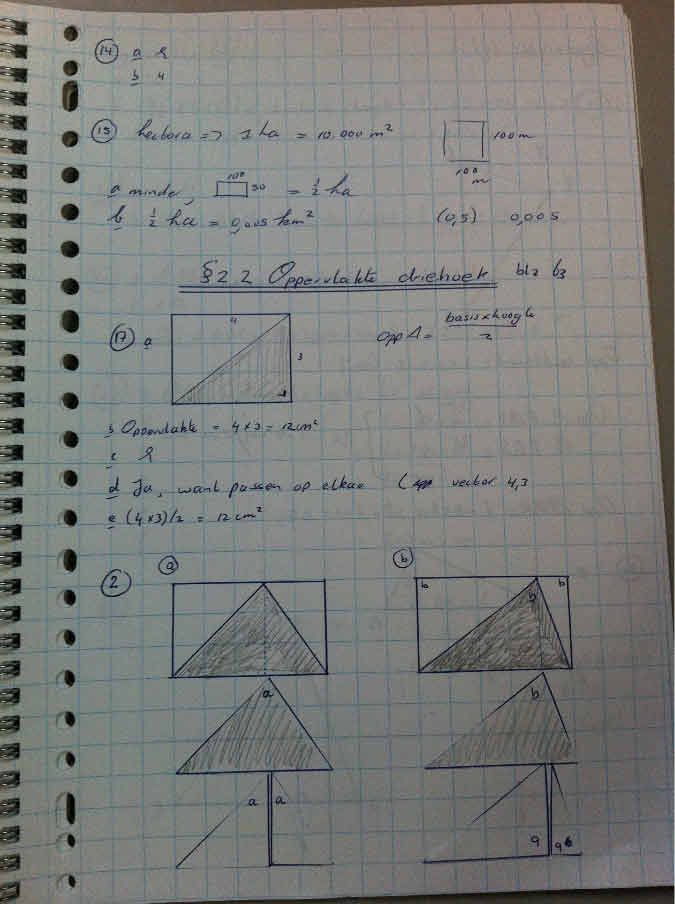 14 a
b 4
15 => 1 ha = 10.000 m² 100 m
100 m
a minder, 100 50 = ½ ha
b ½ ha = 0,005 km² (0,5) 0,005
§ 2.2 Oppervlakte driehoek blz 63
17 a 4 3 opp Δ = basis x hoogte / 2
b Oppervlakte = 4 x 3 = 12 cm²
c
d Ja, want passen op elkaar 4,3
e (4x3)/2 = 12 cm²
2 a b
b b
b
a b
a a